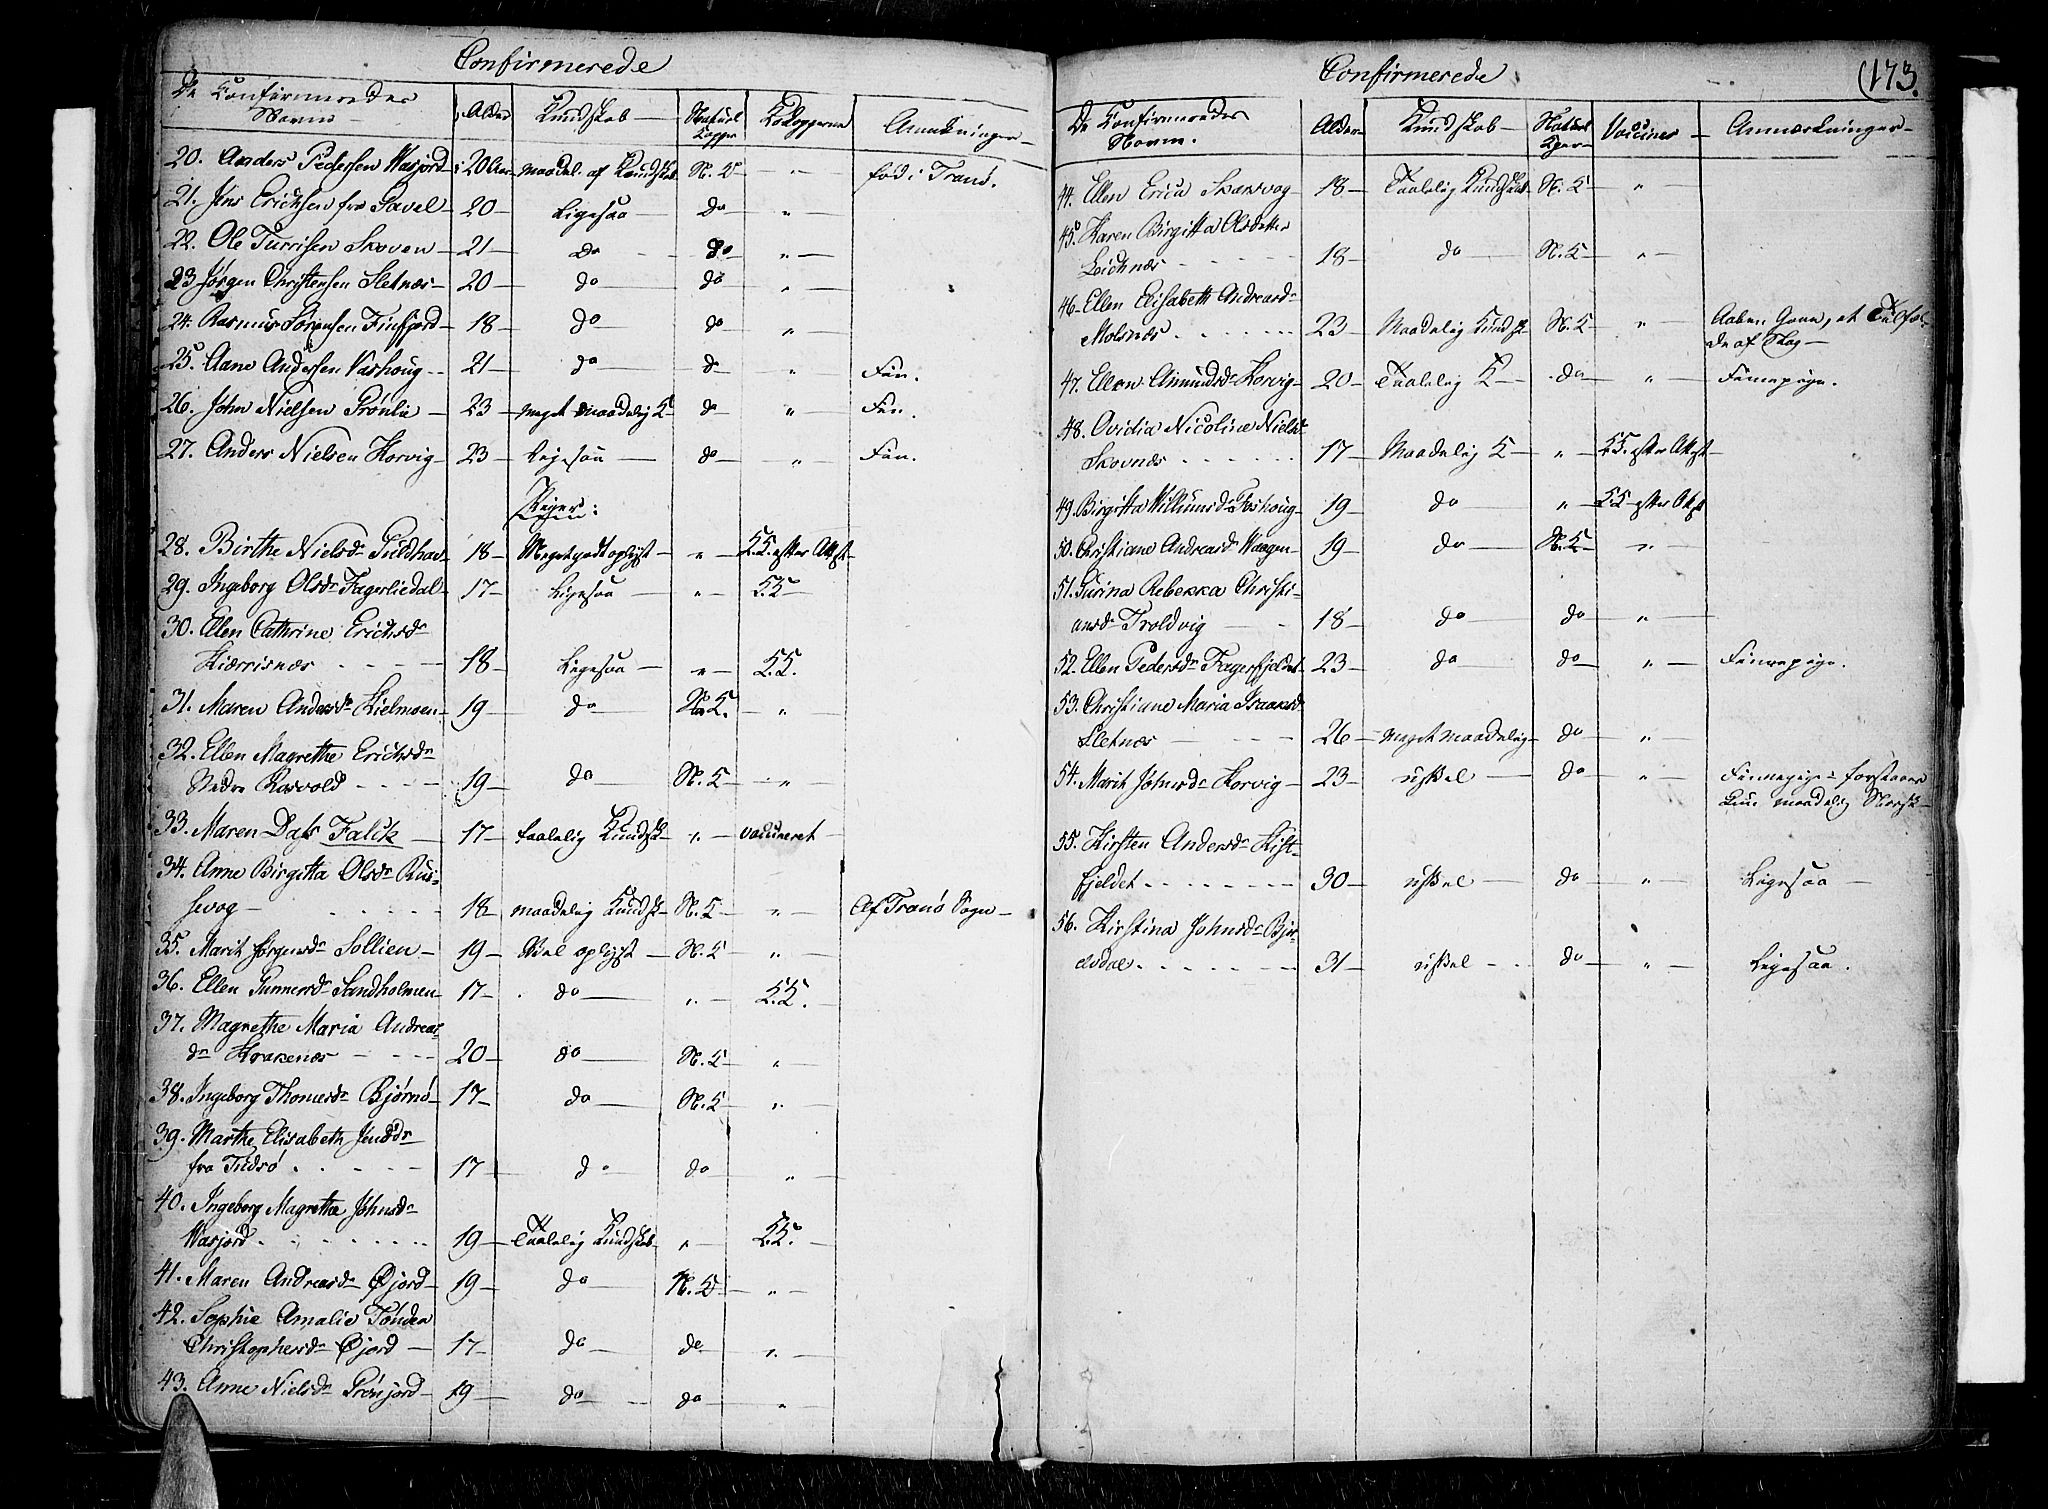 Confirmerede
De Confirmeredes
Navne
Alder
Kundskab
Naturl
Kopper
Kokopperne
Anmerkninger
20. Anders Pedersen Vasjord 20 Aar maadel. af Kundskab N. K " fød i Tranø.
21. Jens Erichsen fra Gavel 20 Ligesaa do "
22. Ole Turrisen Skoven 21 do do "
23 Jørgen Christensen Sletnæs 20 do do "
24. Rasmus Sørensen Finfjord 18 do do "
25. Aane Andersen Vashoug 21 do do " Fin.
26. John Nielsen Grønlie 23 meget maadelig K do " Fin.
27. Anders Nielsen Korvig 23 Ligesaa do " Fin.
Piger:
28. Birthe Nielsdr Guldhav 18 Meget godt oplyst " K.K. efter Attest
29. Ingeborg Olsdr Fagerliedal 17 Ligesaa " K.K
30. Ellen Cathrine Erichsdr
Kiærrisnæs 18 Ligesaa " K.K.
31. Maren Andersdr Kielmoen 19 do N. K. "
32. Ellen Magrethe Erichsdr
Nedre Rosvold 19 do N. K "
33. Maren Dass Falck 17 taalelig Kundsk " vaccineret
34. Anne Birgitta Olsdr Rus-
sevog 18 maadelig Kundsk N. K " Af Tranø Sogn
35. Marit Jørgensdr Sollien 19 Vel oplyst N. K "
36. Ellen Gunnersdr Sandholmen 17 do " K.K.
37. Magrethe Maria Andreas
dr Krakenæs 20 do N. K "
38. Ingeborg Thomesdr Bjørnø 17 do N. K "
39. Marthe Elisabeth Jensdr
fra Tudsø 17 do do "
40. Ingeborg Magrethe Johnsdr
Vasjord 19 Taalelig Kundskab " K.K.
41. Maren Andreasdr Øjord 19 do N. K "
42. Sophie Amalie Tønder
Christophersdr Øjord 17 do do "
43. Anne Nielsdr Grønjord 19 do do "
Confirmerede
(173.
De Confirmeredes
Navne.
Alder
Kundskab
Naturl
Koper
Vacciner
Anmærkninger
44. Ellen Erica Skarsvog 18 Taalelig Kundskab N. K "
45. Karen Birgitta Olsdatter
Leiknæs 18 do N. K "
46. Ellen Elisabeth Andreasdr
Molsnæs 23 Maadelig Kundsk N. K " Aaben Gane, et Tilfæl-
de af Slag
47. Ellen Amundsdr Korvig 20 Taalelig K do " Finnepige.
48. Ovidia Nicoline Nielsdr
Skovnæs 17 Maadelig K " K.K. efter Attest
49. Birgitta Villumsdr Foshoug 19 do " K.K efter Attest
50. Christiane Andreasdr Vaagen 19 do N. K "
51. Gurina Rebekka Christi-
ansdr Troldvig 18 do do "
52. Ellen Pedersdr Fagerfjeldet 23 do do " Finnepige.
53. Christiane Maria Isaaksdr
Sletnæs 26 meget maadelig do "
54. Marit Johnsdr Korvig 23 ussel do " Finnepige forstaaer
kun maadelig Norsk
55. Kirsten Andersdr Kist-
fjeldet 30 ussel do " Ligesaa
56. Kirstina Johnsdr Bjer-
delvdal 31 ussel do " Ligesaa.